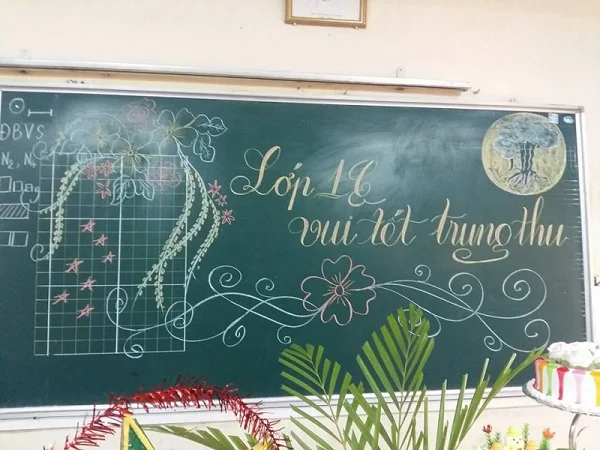 ĐBVS
N₂, N₂
Lớp 1E
vui tết trung thu